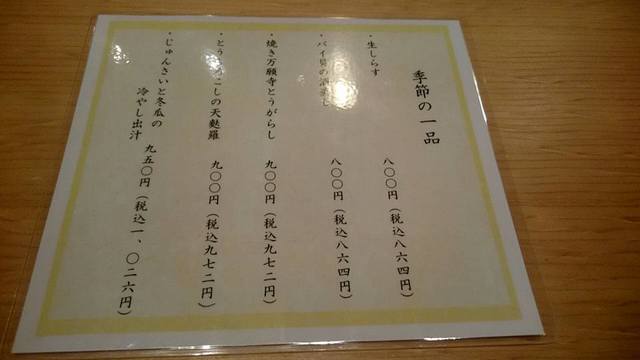 季節の一品
・生しらす
八〇〇円(税込八六四円)
・バイ貝の酒蒸し
八〇〇円(税込八六四円)
・焼き万願寺とうがらし
九〇〇円(税込九七二円)
・とうもろこしの天麩羅
九〇〇円(税込九七二円)
・じゅんさいと冬瓜の
冷やし出汁
九五〇円(税込一、〇二六円)